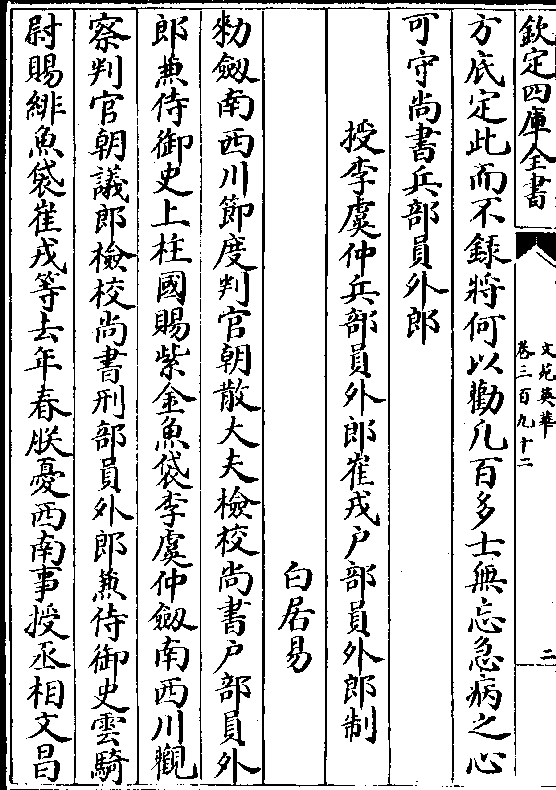 欽定四庫全書
文苑英華
卷三百九十二
二
方底定此而不錄將何以勸凡百多士無忘急病之心
可守尚書兵部員外郎
授李虞仲兵部員外郎崔戎户部員外郎制
白居易
勑劔南西川節度判官朝散大夫檢校尚書户部員外
郎兼侍御史上柱國賜紫金魚袋李虞仲劔南西川觀
察判官朝議郎檢校尚書刑部員外郎兼侍御史雲騎
尉賜緋魚袋崔戎等去年春朕憂西南事授丞相文昌